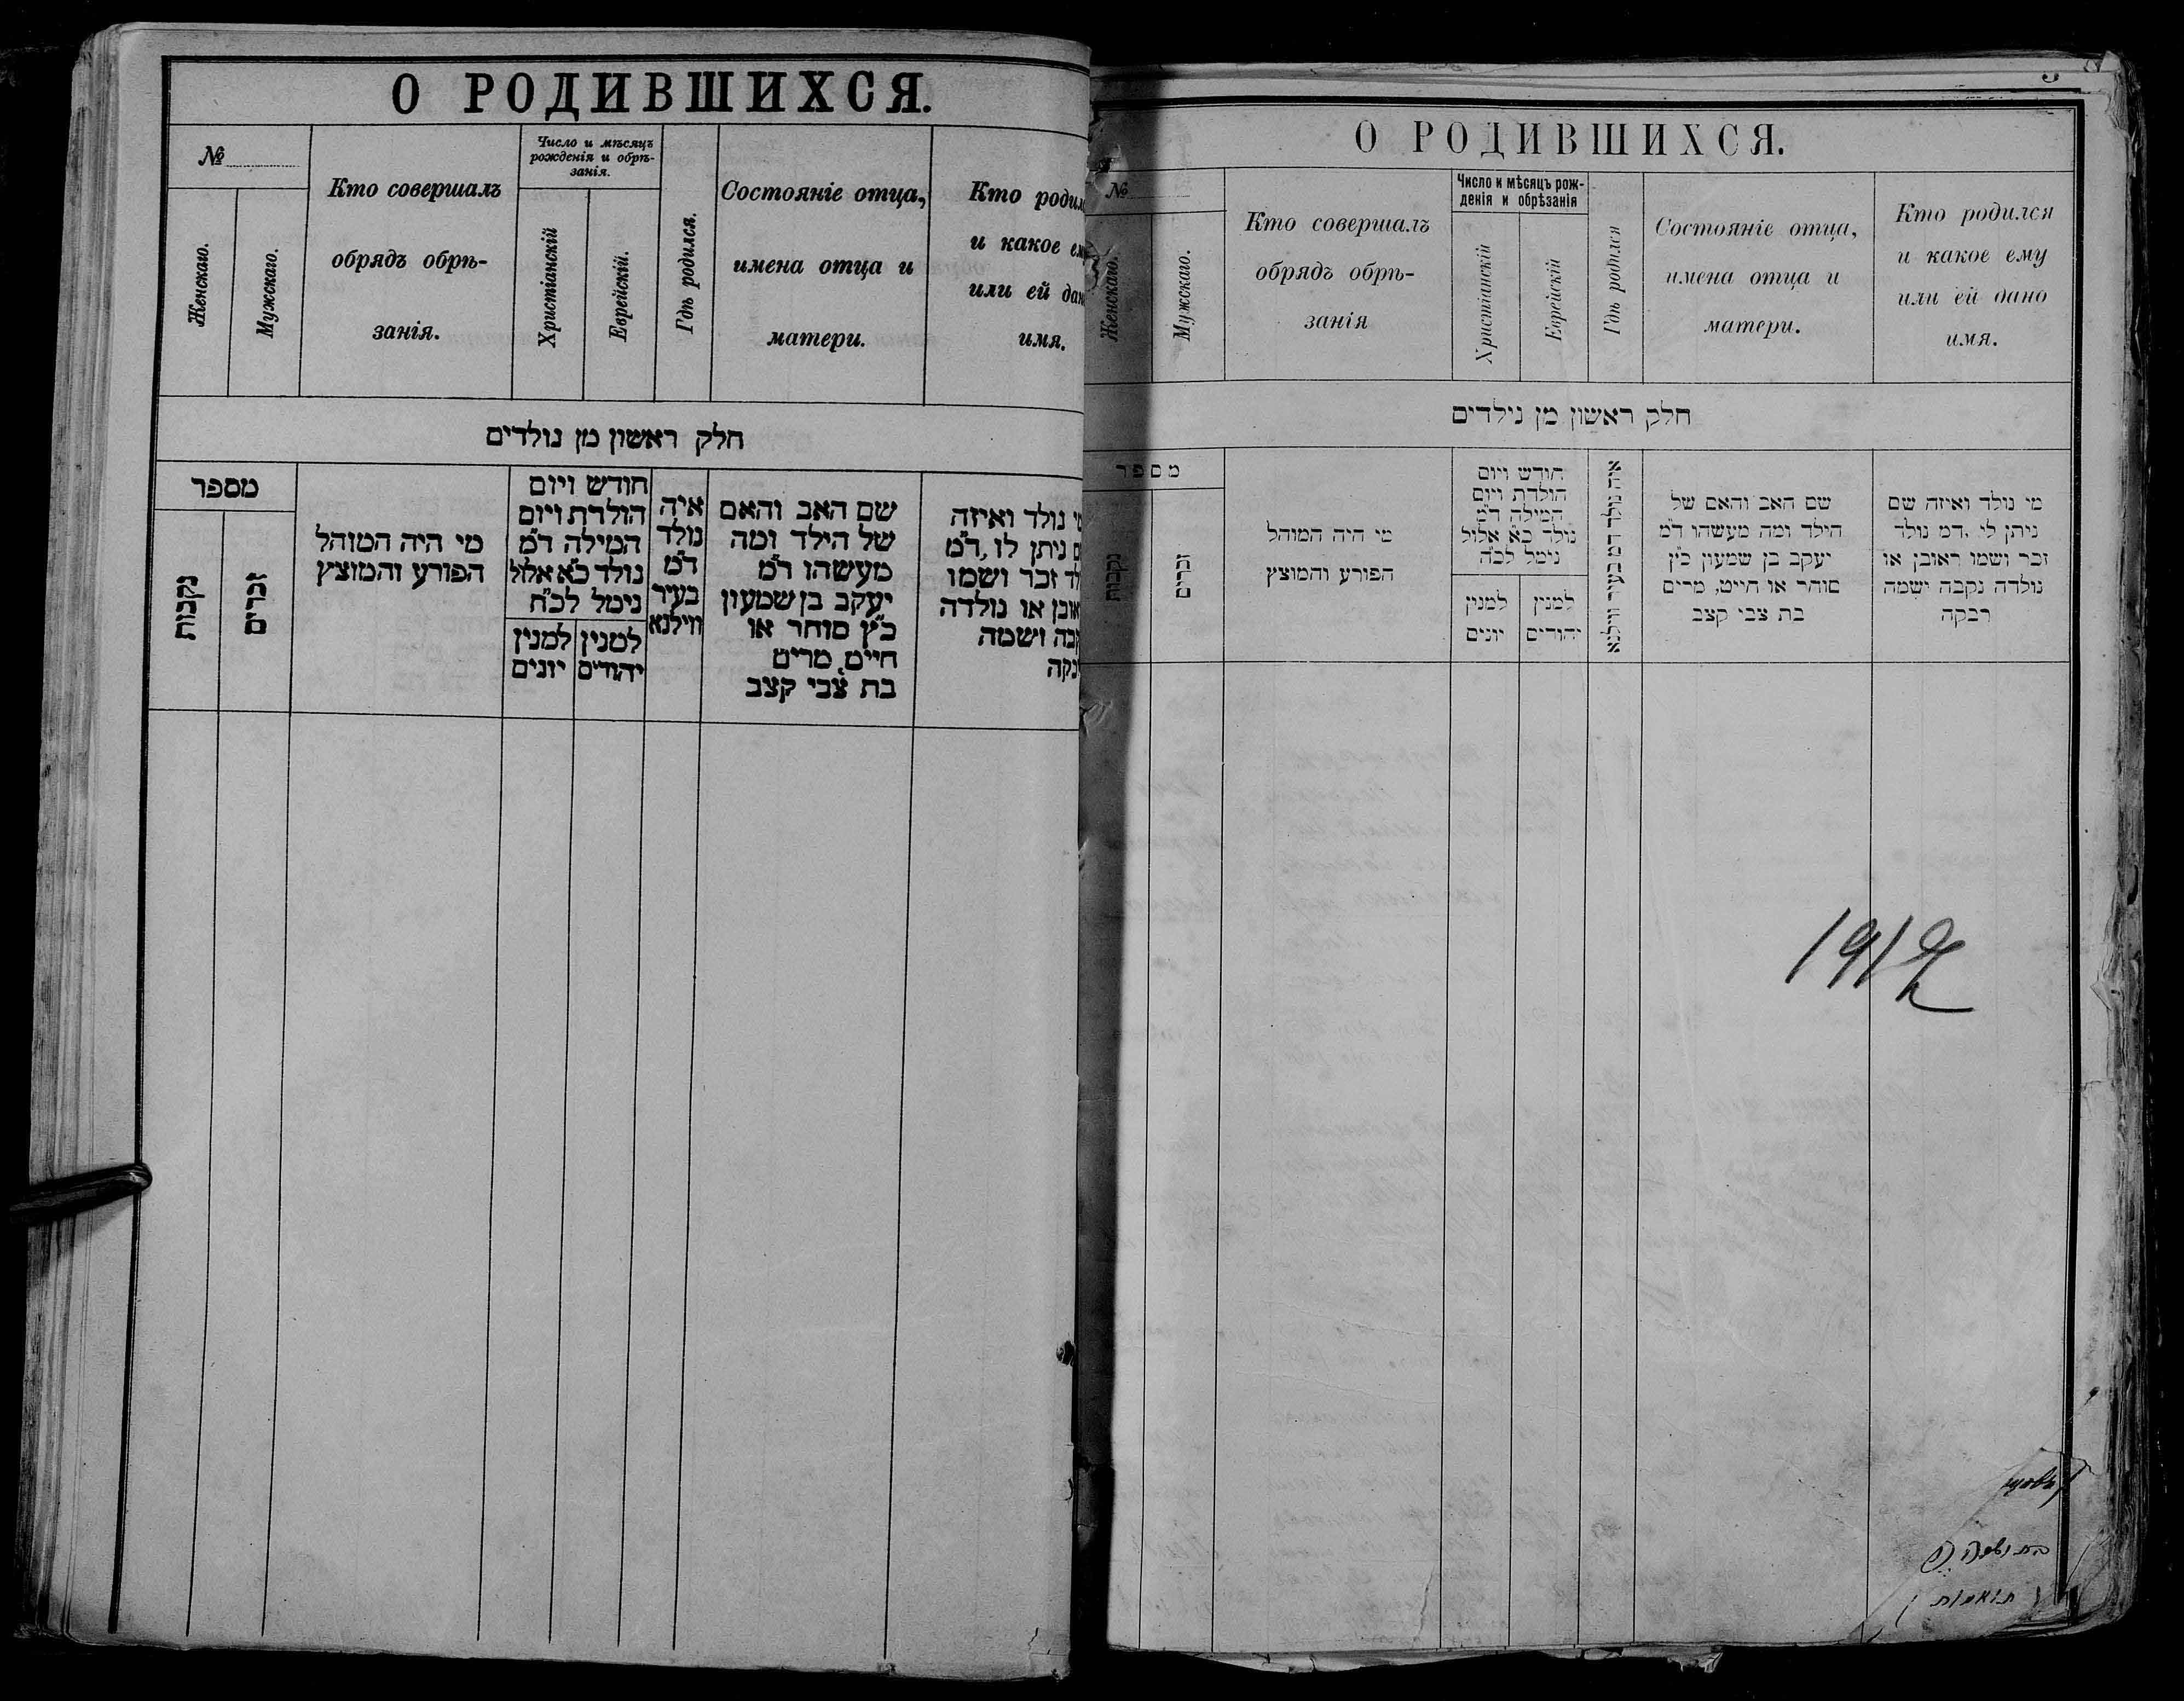 О РОДИВШИХСЯ.
№
Женскаго.
Мужскаго.
Кто совершалъ
обрядъ обрѣ-
занія.
Число и мѣсяцъ
рожденія и обрѣ-
занія.
Христіанскій
Еврейскій.
Гдѣ родился.
Состояніе отца,
имена отца и
матери.
Кто
и какое
или ей
имя.
חלק ראשון מן נולדים
מספר
נקבות
זכרים
מי היה המוהל
הפורע והמוצץ
חודש ויום
הולדת ויום
המילה ד"מ
נולד כ"א אלול
נימל לכ"ח
למנין
יונים
למנין
יהודים
איה
נולד
ד"מ
בעיר
ווילנא
שם האב והאם
של הילד ומה
מעשהו ד"מ
יעקב בן שמעון
כ"ץ סוחר או
חייט, מרים
בת צבי קצב
נולד ואיזה
ניתן לו, ד"מ
זכר ושמו
או נולדה
ושמה
О РОДИВШИХСЯ.
№
Женскаго.
Мужскаго.
Кто совершалъ
обрядъ обрѣ-
занія
Число и мѣсяцъ рож-
денія и обрѣзанія
Христіанскій
Еврейскій
Гдѣ родился
Состояніе отца,
имена отца и
матери.
Кто родился
и какое ему
или ей дано
имя.
חלק ראשון מן נילדים
מספר
נקבות
זכרים
מי היה המוהל
הפורע והמוצץ
חודש ויום
הולדת ויום
המילה ד"מ
נולד כ"א אלול
נימל לכ"ח
למנין
יונים
למנין
יהודים
איה נולד ד"מ בעיר ווילנא
שם האב והאם של
הילד ומה מעשהו ד"מ
יעקב בן שמעון כ"ץ
סוחר או חייט, מרים
בת צבי קצב
מי נולד ואיזה שם
ניתן לי .ד"מ נולד
זכר ושמו ראובן או
נולדה נקבה ישמה
רבקה
1912